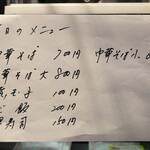 日のメニュー
中華そば 700円
華そば大 800円
玉子 100円
ご飯 200円
寿司 150円
中華そば小